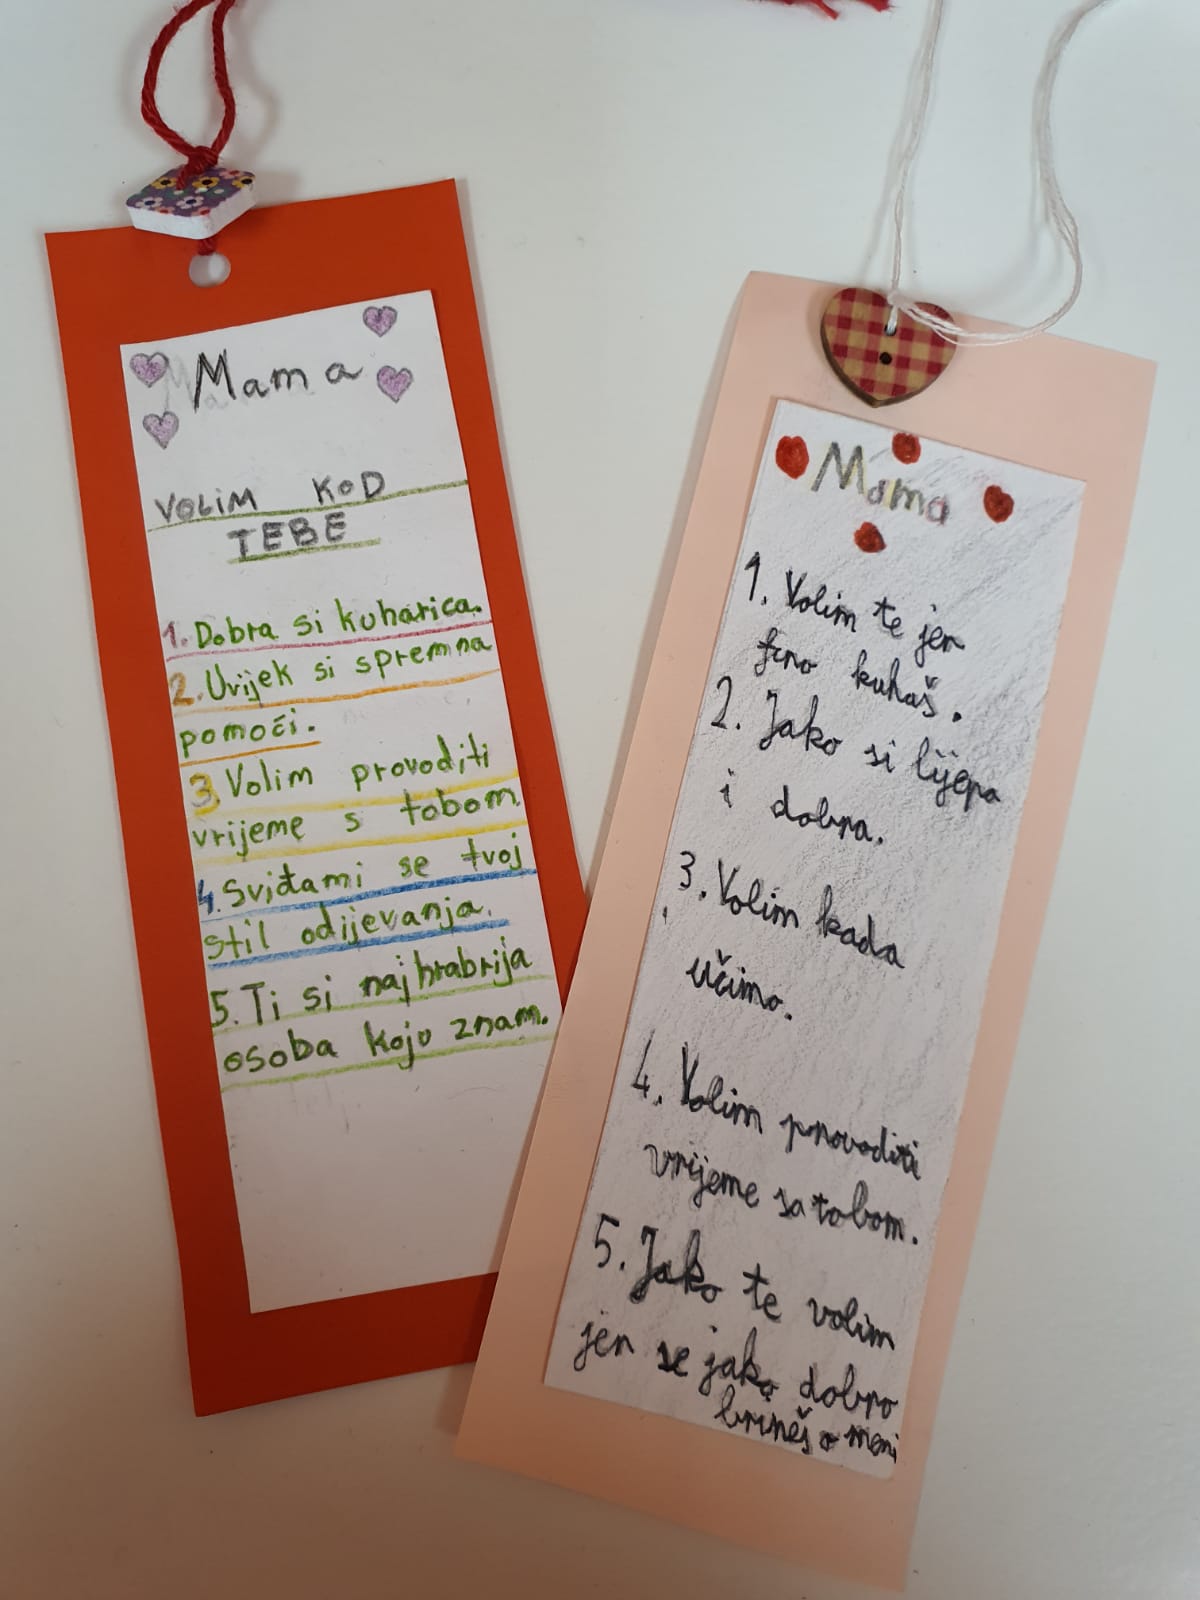 Mama
VOLIM KOD
TEBE
1. Dobra si kuharica.
2. Uvijek si spremna
pomoći.
3. Volim provoditi
vrijeme s tobom.
4. Sviđami se tvoj
stil odijevanja.
5. Ti si najhrabrija
osoba koju znam.
Mama
1. Volim te jer
fino kuhaš.
2. Jako si lijepa
i dobra.
3. Volim kada
učimo.
4. Volim provoditi
vrijeme sa tobom.
5. Jako te volim
jer se jako dobro
brineš o meni